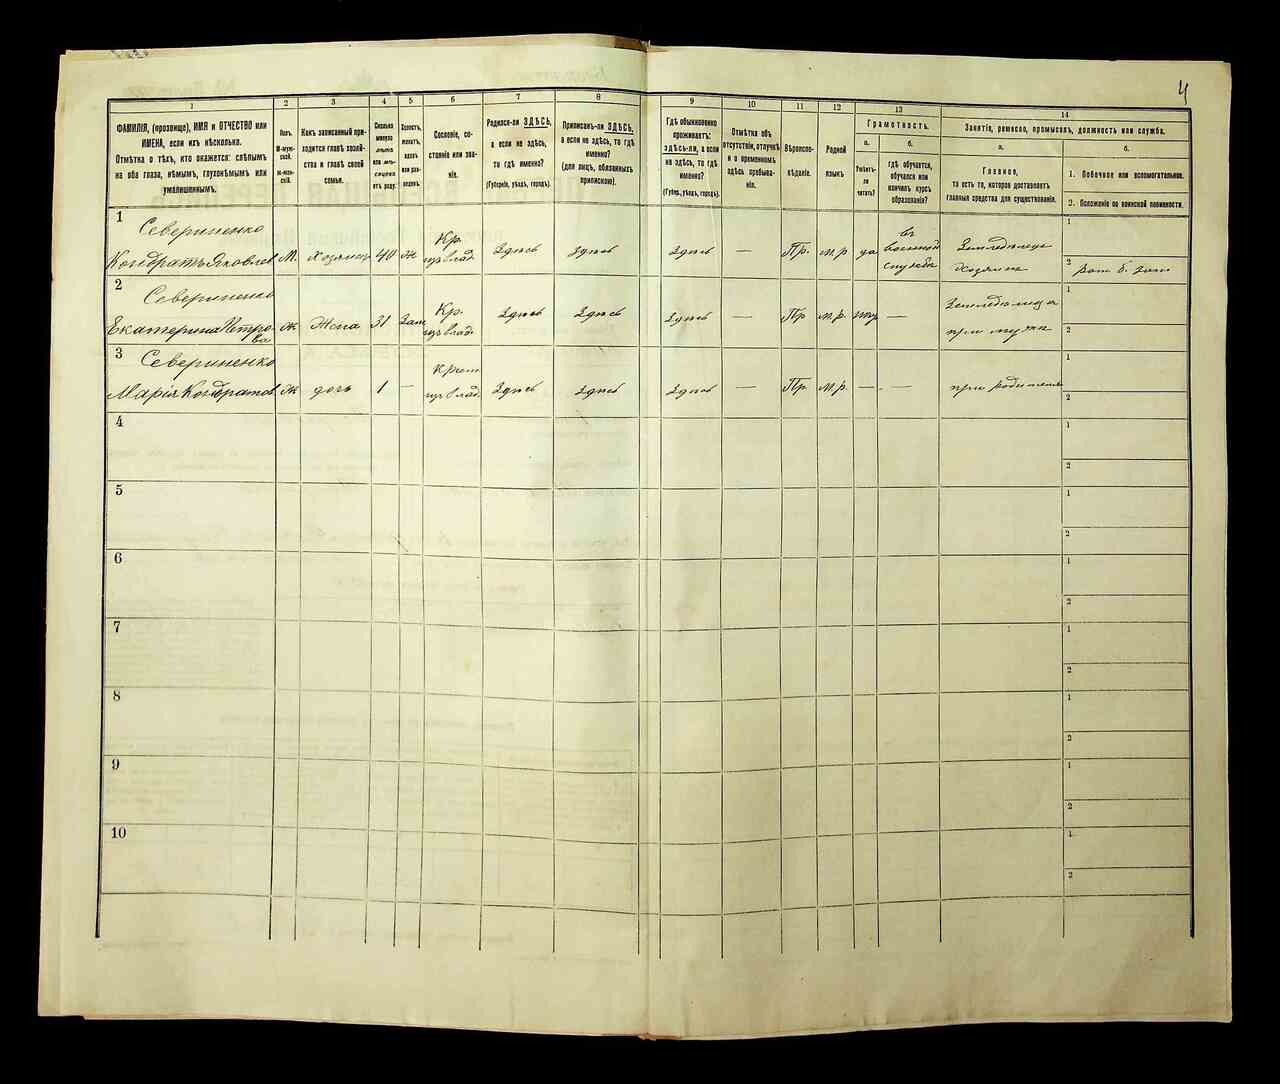 4
1
2
3
4
5
6
7
8
9
10
11
12
13
14
ФАМИЛІЯ, (прозвище), ИМЯ и ОТЧЕСТВО или
ИМЕНА, если ихъ нѣсколько.
Отмѣтка о тѣхъ, кто окажется: слѣпымъ
на оба глаза, нѣмымъ, глухонѣмымъ или
умалишеннымъ.
Полъ.
М-муж-
ской.
Ж-жен-
скій.
Какъ записанный при-
ходится главѣ хозяй-
ства и главѣ своей
семьи.
Сколько
минуло
лѣтъ
или мѣ-
сяцевъ
отъ роду.
Холостъ,
женатъ,
вдовъ
или раз-
веденъ.
Сословіе, со-
стояніе или зва-
ніе.
Родился-ли ЗДѢСЬ,
а если не здѣсь,
то гдѣ именно?
(Губернія, уѣздъ, городъ).
Приписанъ-ли ЗДѢСЬ,
а если не здѣсь, то гдѣ
именно?
(для лицъ, обязанныхъ
припискою).
Гдѣ обыкновенно
проживаетъ:
здѣсь-ли, а если
не здѣсь, то гдѣ
именно?
(Губерн., уѣздъ, городъ).
Отмѣтка объ
отсутствіи, отлучкѣ
и о временномъ
здѣсь пребыва-
ніи.
Вѣроиспо-
вѣданіе.
Родной
языкъ
Грамотность.
а.
Умѣетъ-
ли
читать?
б.
гдѣ обучается,
обучался или
кончилъ курсъ
образованія?
Занятіе, ремесло, промыселъ, должность или служба.
а.
Главное,
то есть то, которое доставляетъ
главныя средства для существованія.
б.
1. Побочное или вспомогательное.
2. Положеніе по воинской повинности.
1
Севериненко
Кондратъ Яковлев
М.
Хозяинъ
40
ж
Кр.
изъ влад.
Здѣсь
Здѣсь
Здѣсь
—
Пр.
м.р
да
въ
военной
службѣ
Земледѣлецъ
Хозяинъ
1
2
2
Севериненко
Екатерина Петро-
ва
Ж
Жена
31
Зам
Кр.
изъ влад.
Здѣсь
Здѣсь
Здѣсь
—
Пр
м.р.
—
при мужѣ
1
2
3
Севериненко
Марія Кондратов
Ж
дочь
1
—
Крест
изъ влад.
Здѣсь
Здѣсь
Здѣсь
—
Пр.
м.р.
—
—
1
2
4
1
2
5
1
2
6
1
2
7
1
2
8
1
2
9
1
2
10
1
2